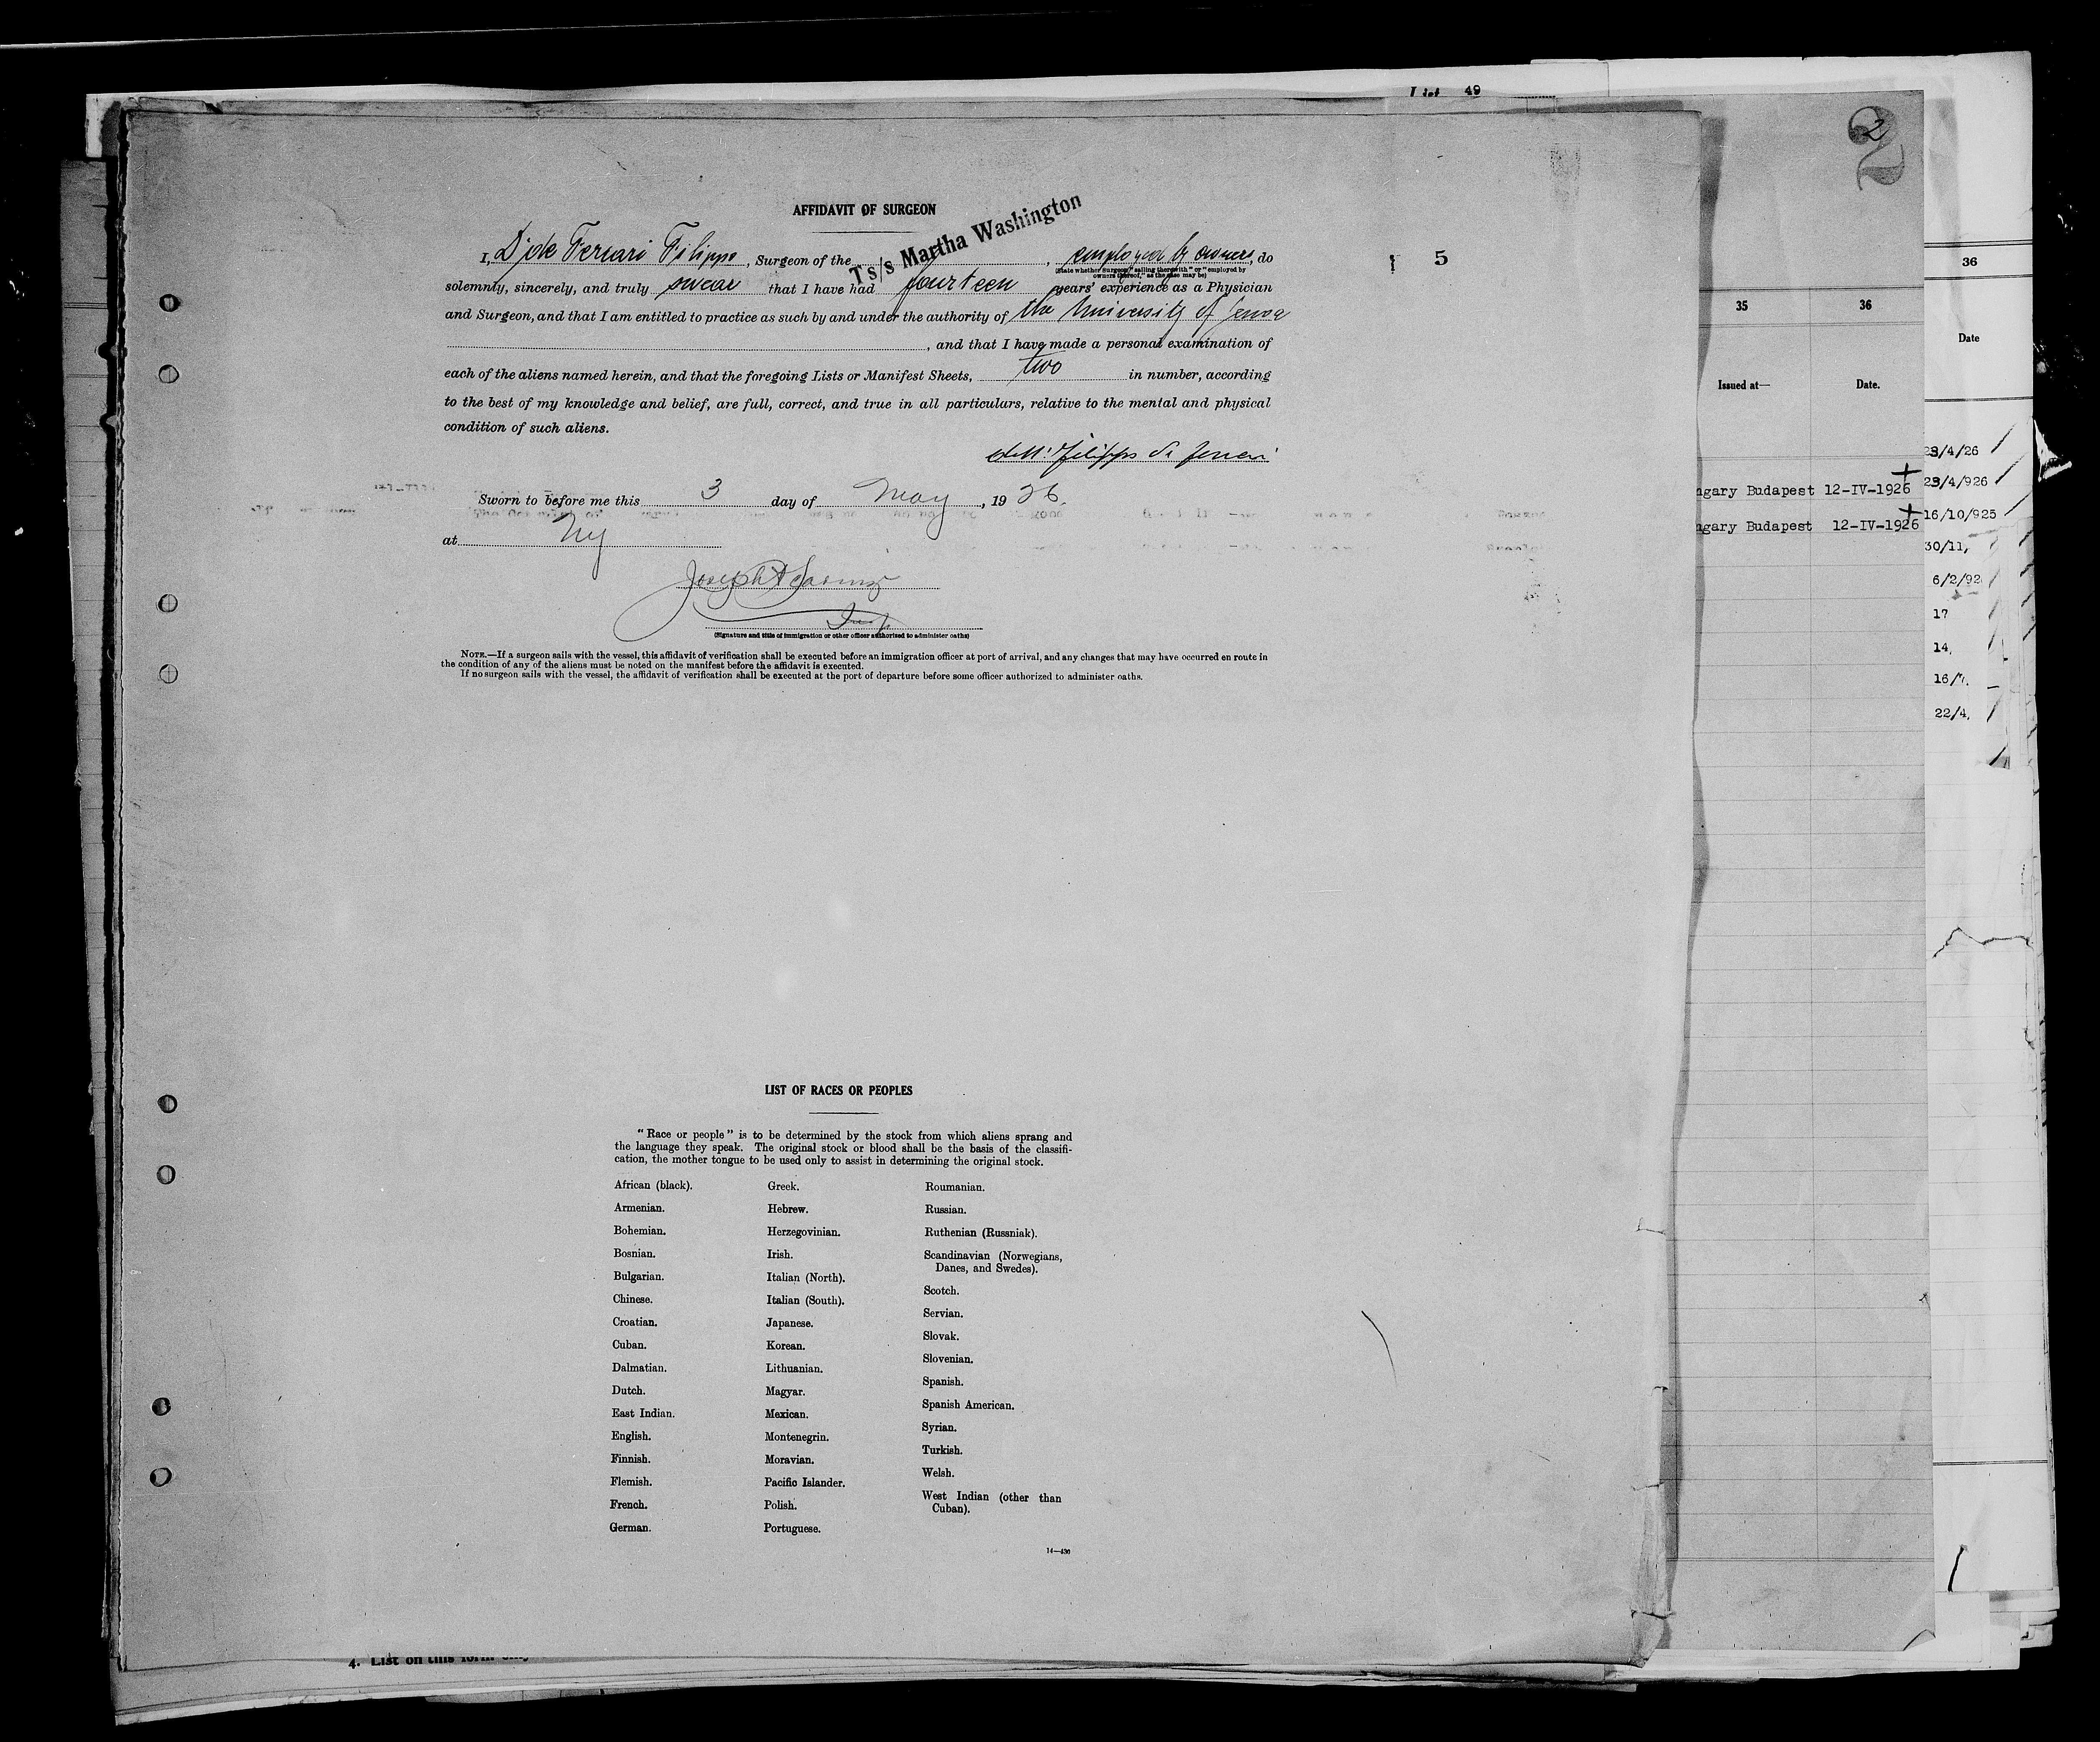 List 49
2
AFFIDAVIT OF SURGEON
Ts/s Martha Washington
I, D: de Ferrari Filippo, Surgeon of the , employed by owners, do
(State whether Surgeon "sailing therewith" or "employed by
owners thereof," as the case may be)
5
solemnly, sincerely, and truly swear that I have had fourteen years' experience as a Physician
and Surgeon, and that I am entitled to practice as such by and under the authority of the University of Genoa
, and that I have made a personal examination of
each of the aliens named herein, and that the foregoing Lists or Manifest Sheets, two in number, according
to the best of my knowledge and belief, are full, correct, and true in all particulars, relative to the mental and physical
condition of such aliens.
Filippo de Ferrari
Sworn to before me this 3 day of May, 1926.
at NY
Joseph
Insp
(Signature and title of immigration or other officer authorized to administer oaths)
NOTE.—If a surgeon sails with the vessel, this affidavit of verification shall be executed before an immigration officer at port of arrival, and any changes that may have occurred en route in
the condition of any of the aliens must be noted on the manifest before the affidavit is executed.
If no surgeon sails with the vessel, the affidavit of verification shall be executed at the port of departure before some officer authorized to administer oaths.
LIST OF RACES OR PEOPLES
"Race or people" is to be determined by the stock from which aliens sprang and
the language they speak. The original stock or blood shall be the basis of the classifi-
cation, the mother tongue to be used only to assist in determining the original stock.
African (black).
Armenian.
Bohemian.
Bosnian.
Bulgarian.
Chinese.
Croatian.
Cuban.
Dalmatian.
Dutch.
East Indian.
English.
Finnish.
Flemish.
French.
German.
Greek.
Hebrew.
Herzegovinian.
Irish.
Italian (North).
Italian (South).
Japanese.
Korean.
Lithuanian.
Magyar.
Mexican.
Montenegrin.
Moravian.
Pacific Islander.
Polish.
Portuguese.
Roumanian.
Russian.
Ruthenian (Russniak).
Scandinavian (Norwegians,
Danes, and Swedes).
Scotch.
Servian.
Slovak.
Slovenian.
Spanish.
Spanish American.
Syrian.
Turkish.
Welsh.
West Indian (other than
Cuban).
14—430
4. List on this form only
35 36
Issued at— Date.
ngary Budapest 12-IV-1926
ngary Budapest 12-IV-1926
36
Date
23/4/26
23/4/926
16/10/925
30/11/
6/2/92
17
14.
16/7.
22/4.